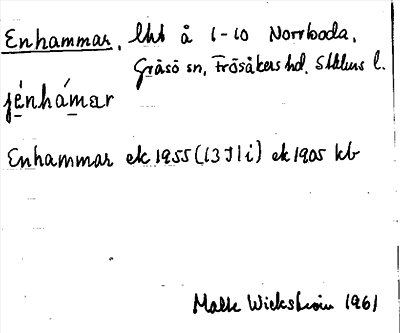 Enhammar, lht å 1-10 Norrboda,
Gräsö sn, Frösåkers hd, Sthlms l.
jénhámar
Enhammar ek 1955 (13 I 1 i) ek 1905 kb
Malte Wickström 1961